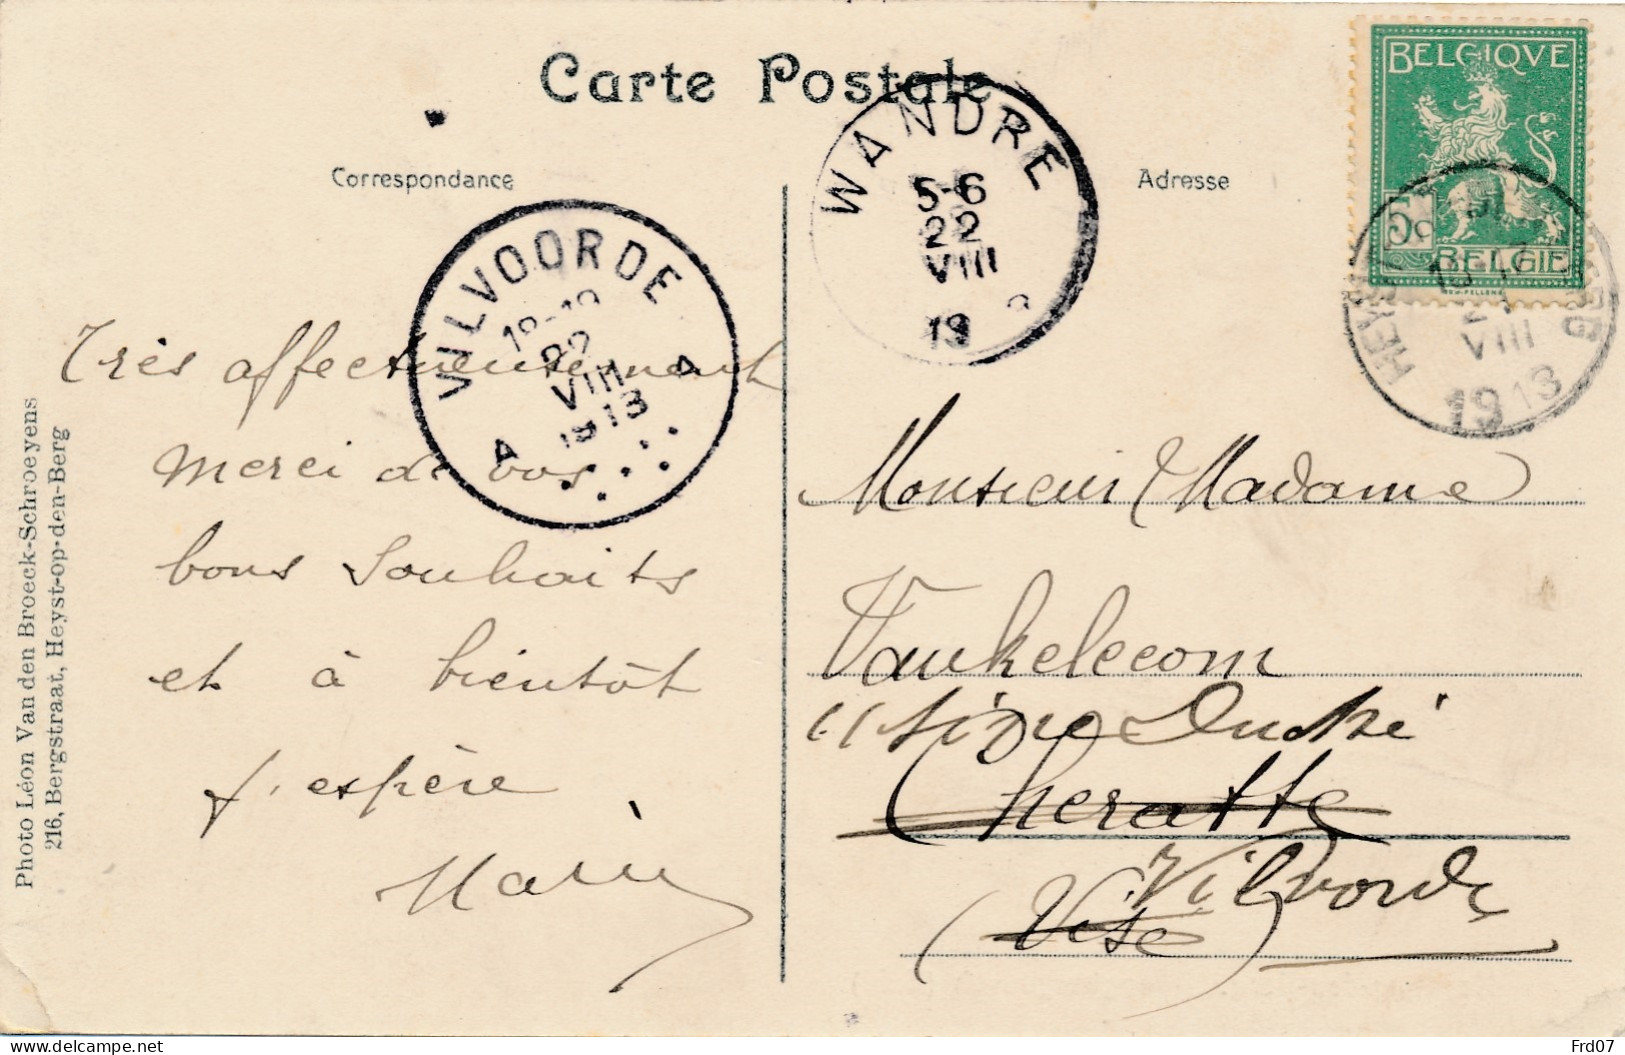 Carte Postale
Correspondance
Adresse
BELGIQVE
5c
BELGIË
WANDRE
5-6
22
VIII
13
VILVOORDE
22
VIII
1913
A A
VIII
1913
Très affectueusement
merci de vos
bons souhaits
et à bientôt
j'espère
Marie
Monsieur Madame
Vankelecom
11
Cheratte
Vilvorde
(Visé)
Photo Léon Van den Broeck-Schroeyens
216, Bergstraat, Heyst-op-den-Berg
Frd07